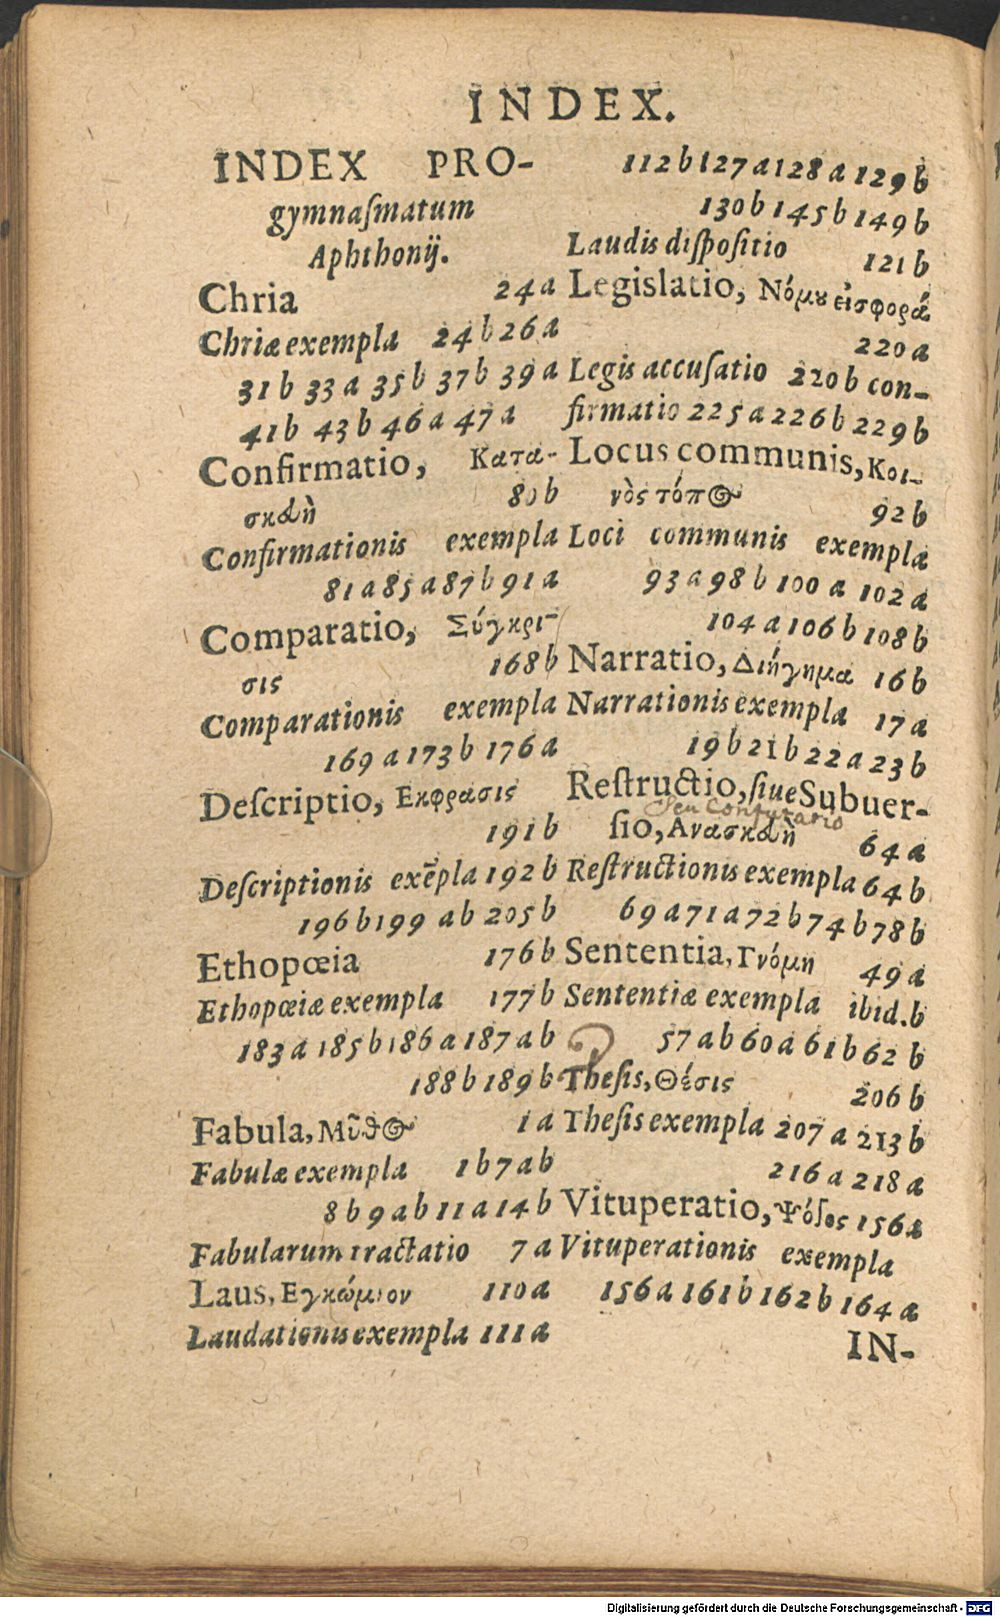 INDEX.
INDEX PRO-
gymnaſmatum
Aphthonij.
Chria 24 a
Chriæ exempla 24 b 26 a
31 b 33 a 35 b 37 b 39 a
41 b 43 b 46 a 47 a
Confirmatio, Κατα-
σκευὴ 80 b
Confirmationis exempla
81 a 85 a 87 b 91 a
Comparatio, Σύγκρι-
σις 168 b
Comparationis exempla
169 a 173 b 176 a
Deſcriptio, Εκφρασις
191 b
Deſcriptionis exẽpla 192 b
196 b 199 ab 205 b
Ethopœia 176 b
Ethopœiæ exempla 177 b
183 a 185 b 186 a 187 a b
188 b 189 b
Fabula, Μῦθος 1 a
Fabulæ exempla 1 b 7 a b
8 b 9 a b 11 a 14 b
Fabularum tractatio 7 a
Laus, Εγκώμιον 110 a
Laudationis exempla 111 a
112 b 127 a 128 a 129 b
130 b 145 b 149 b
Laudis diſpoſitio 121 b
Legislatio, Νόμου εἰσφορά
220 a
Legis accuſatio 220 b con-
firmatio 225 a 226 b 229 b
Locus communis, Κοι-
νὸς τόπος 92 b
Loci communis exempla
93 a 98 b 100 a 102 a
104 a 106 b 108 b
Narratio, Διήγημα 16 b
Narrationis exempla 17 a
19 b 21 b 22 a 23 b
Reſtructio, ſiue Subuer-
seu Confutatio
ſio, Ανασκευὴ 64 a
Reſtructionis exempla 64 b
69 a 71 a 72 b 74 b 78 b
Sententia, Γνόμη 49 a
Sententiæ exempla ibid. b
57 a b 60 a 61 b 62 b
Theſis, Θέσις 206 b
Theſis exempla 207 a 213 b
216 a 218 a
Vituperatio, Ψόγος 156 a
Vituperationis exempla
156 a 161 b 162 b 164 a
IN-
Digitalisierung gefördert durch die Deutsche Forschungsgemeinschaft - DFG